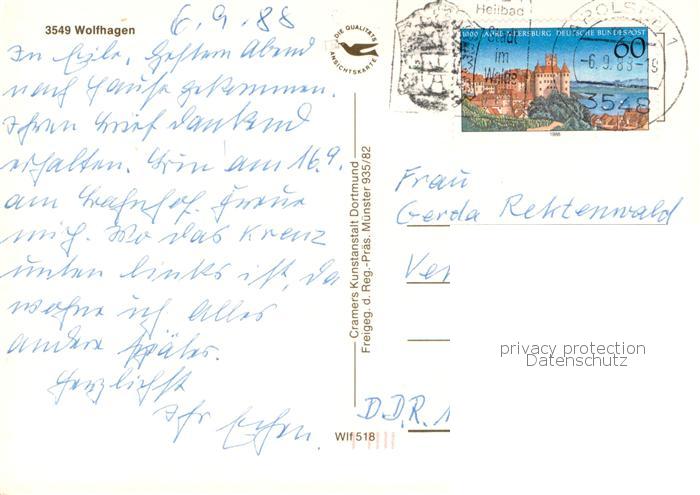 3549 Wolfhagen
6.9.88
In Eile, Gestern Abend
nach Hause gekommen.
Ihren Brief dankend
erhalten. Bin am 16.9.
am Bahnhof. Freue
mich. Wo das Kreuz
unten links ist, da
wohne ich. Alles
andere später.
Herzlichst
Ihr
DIE QUALITÄTS
ANSICHTSKARTE
Cramers Kunstanstalt Dortmund
Freigeg. d. Reg.-Präs. Münster 935/82
Wlf 518
Heilbad
Stadt
im
1000 JAHRE MEERSBURG DEUTSCHE BUNDESPOST
60
1988
-6.9.88-19
3548
Frau
Gerda Rektenwald
D.D.R. 1
privacy protection
Datenschutz